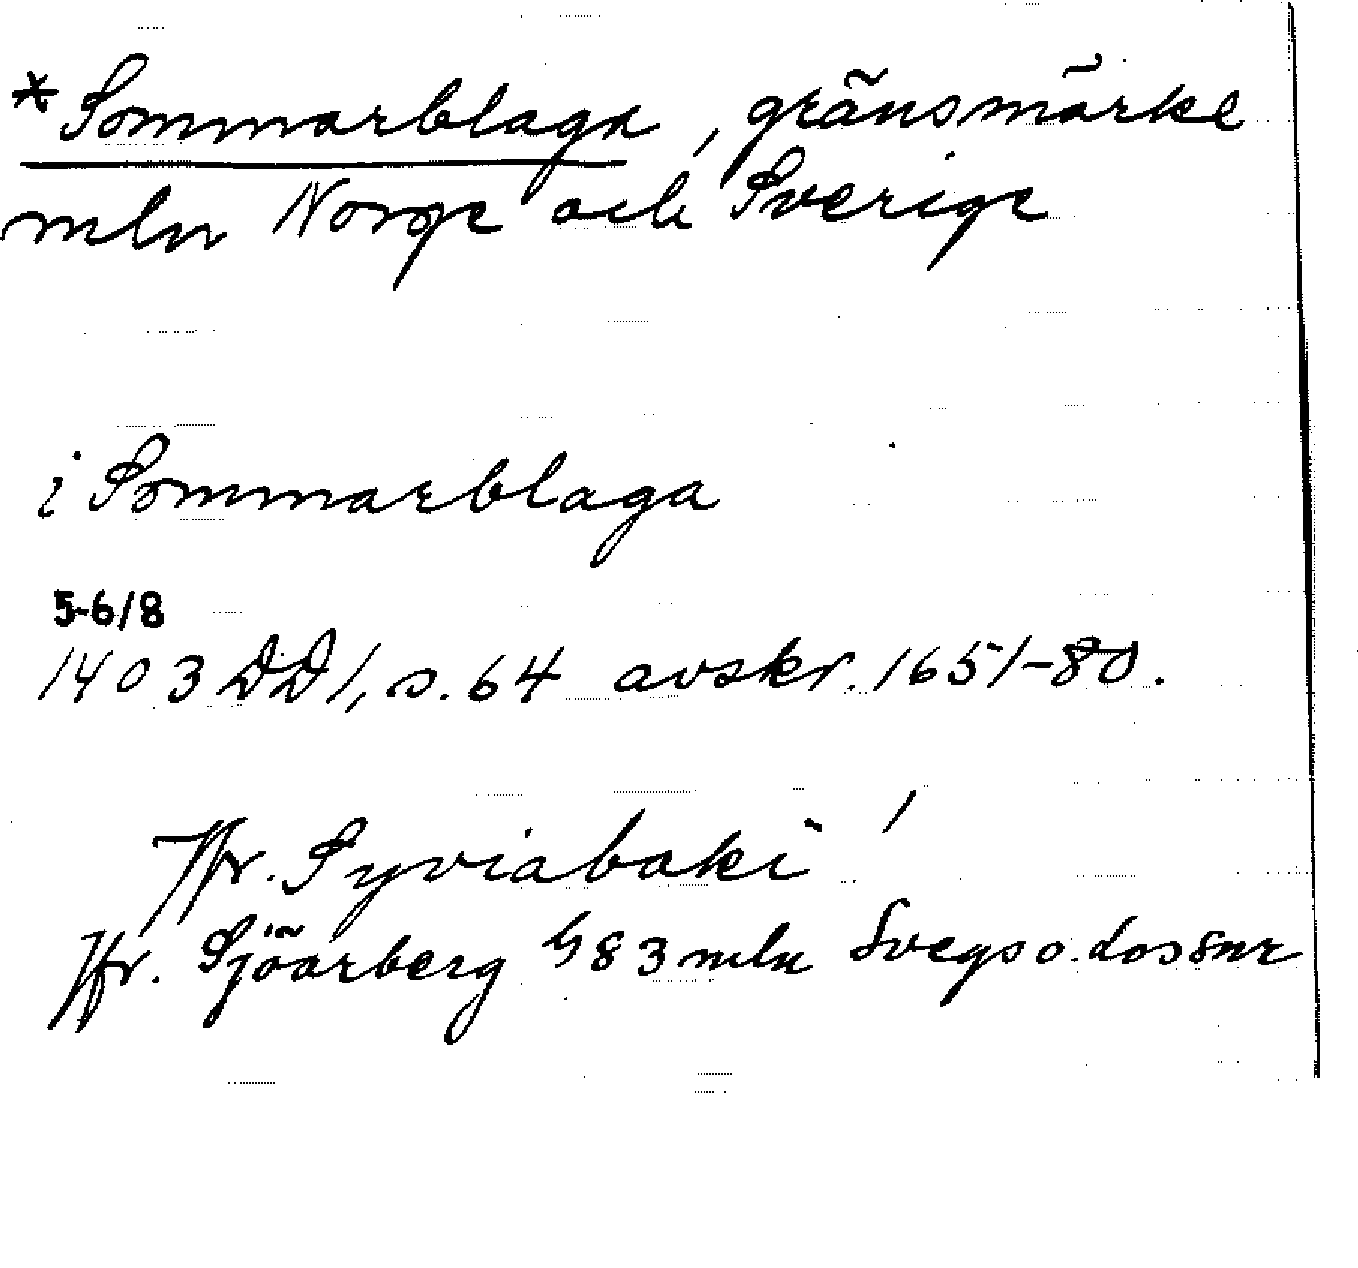 *Sommarblaga, gränsmärke
mln Norge och Sverige
i Sommarblaga
5-6/8
1403 DD 1, s. 64 avskr. 1651-80.
Jfr. Syviabaki
Jfr. Sjöarberg 83 mln Svegs o.